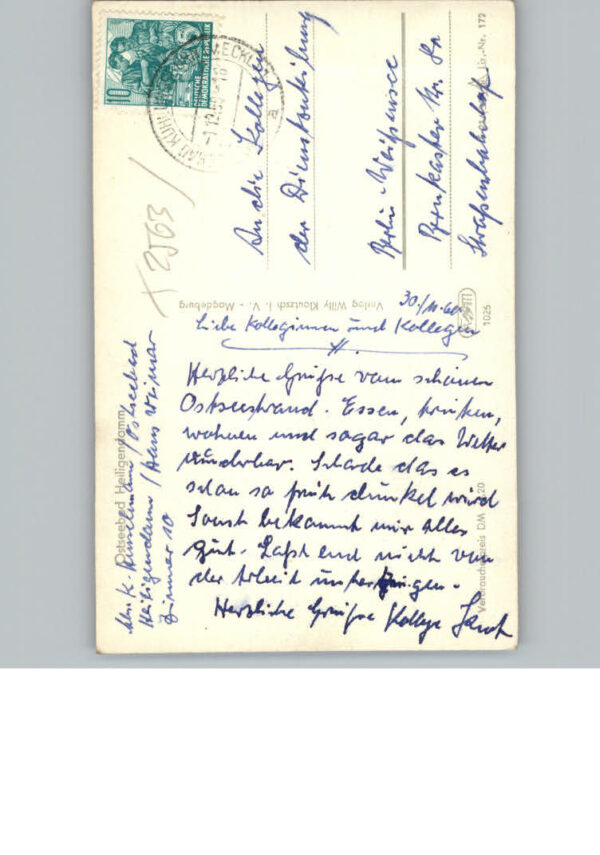 10
DEUTSCHE
DEMOKRATISCHE REPUBLIK
a
An die Kollegen
der Diensteinteilung
Berlin-Weißensee
Bernkasteler Str. 80
Straßenbahnhof
Liz.-Nr. 172
X2563/
Verlag Willy Klautzsch i. V. - Magdeburg
1025
30./11.60
Liebe Kolleginnen und Kollegen
Herzliche Grüße vom schönen
Ostseestrand. Essen, trinken,
wohnen und sogar das Wetter
wunderbar. Schade das es
schon so früh dunkel wird
Sonst bekommt mir alles
gut. Laßt euch nicht von
der Arbeit unterkriegen.
Herzliche Grüße Kollege
Ostseebad Heiligendamm
Verbraucherpreis DM 0,20
Abs. K. / Ostseebad
Heiligendamm / Haus Weimar
Zimmer 10